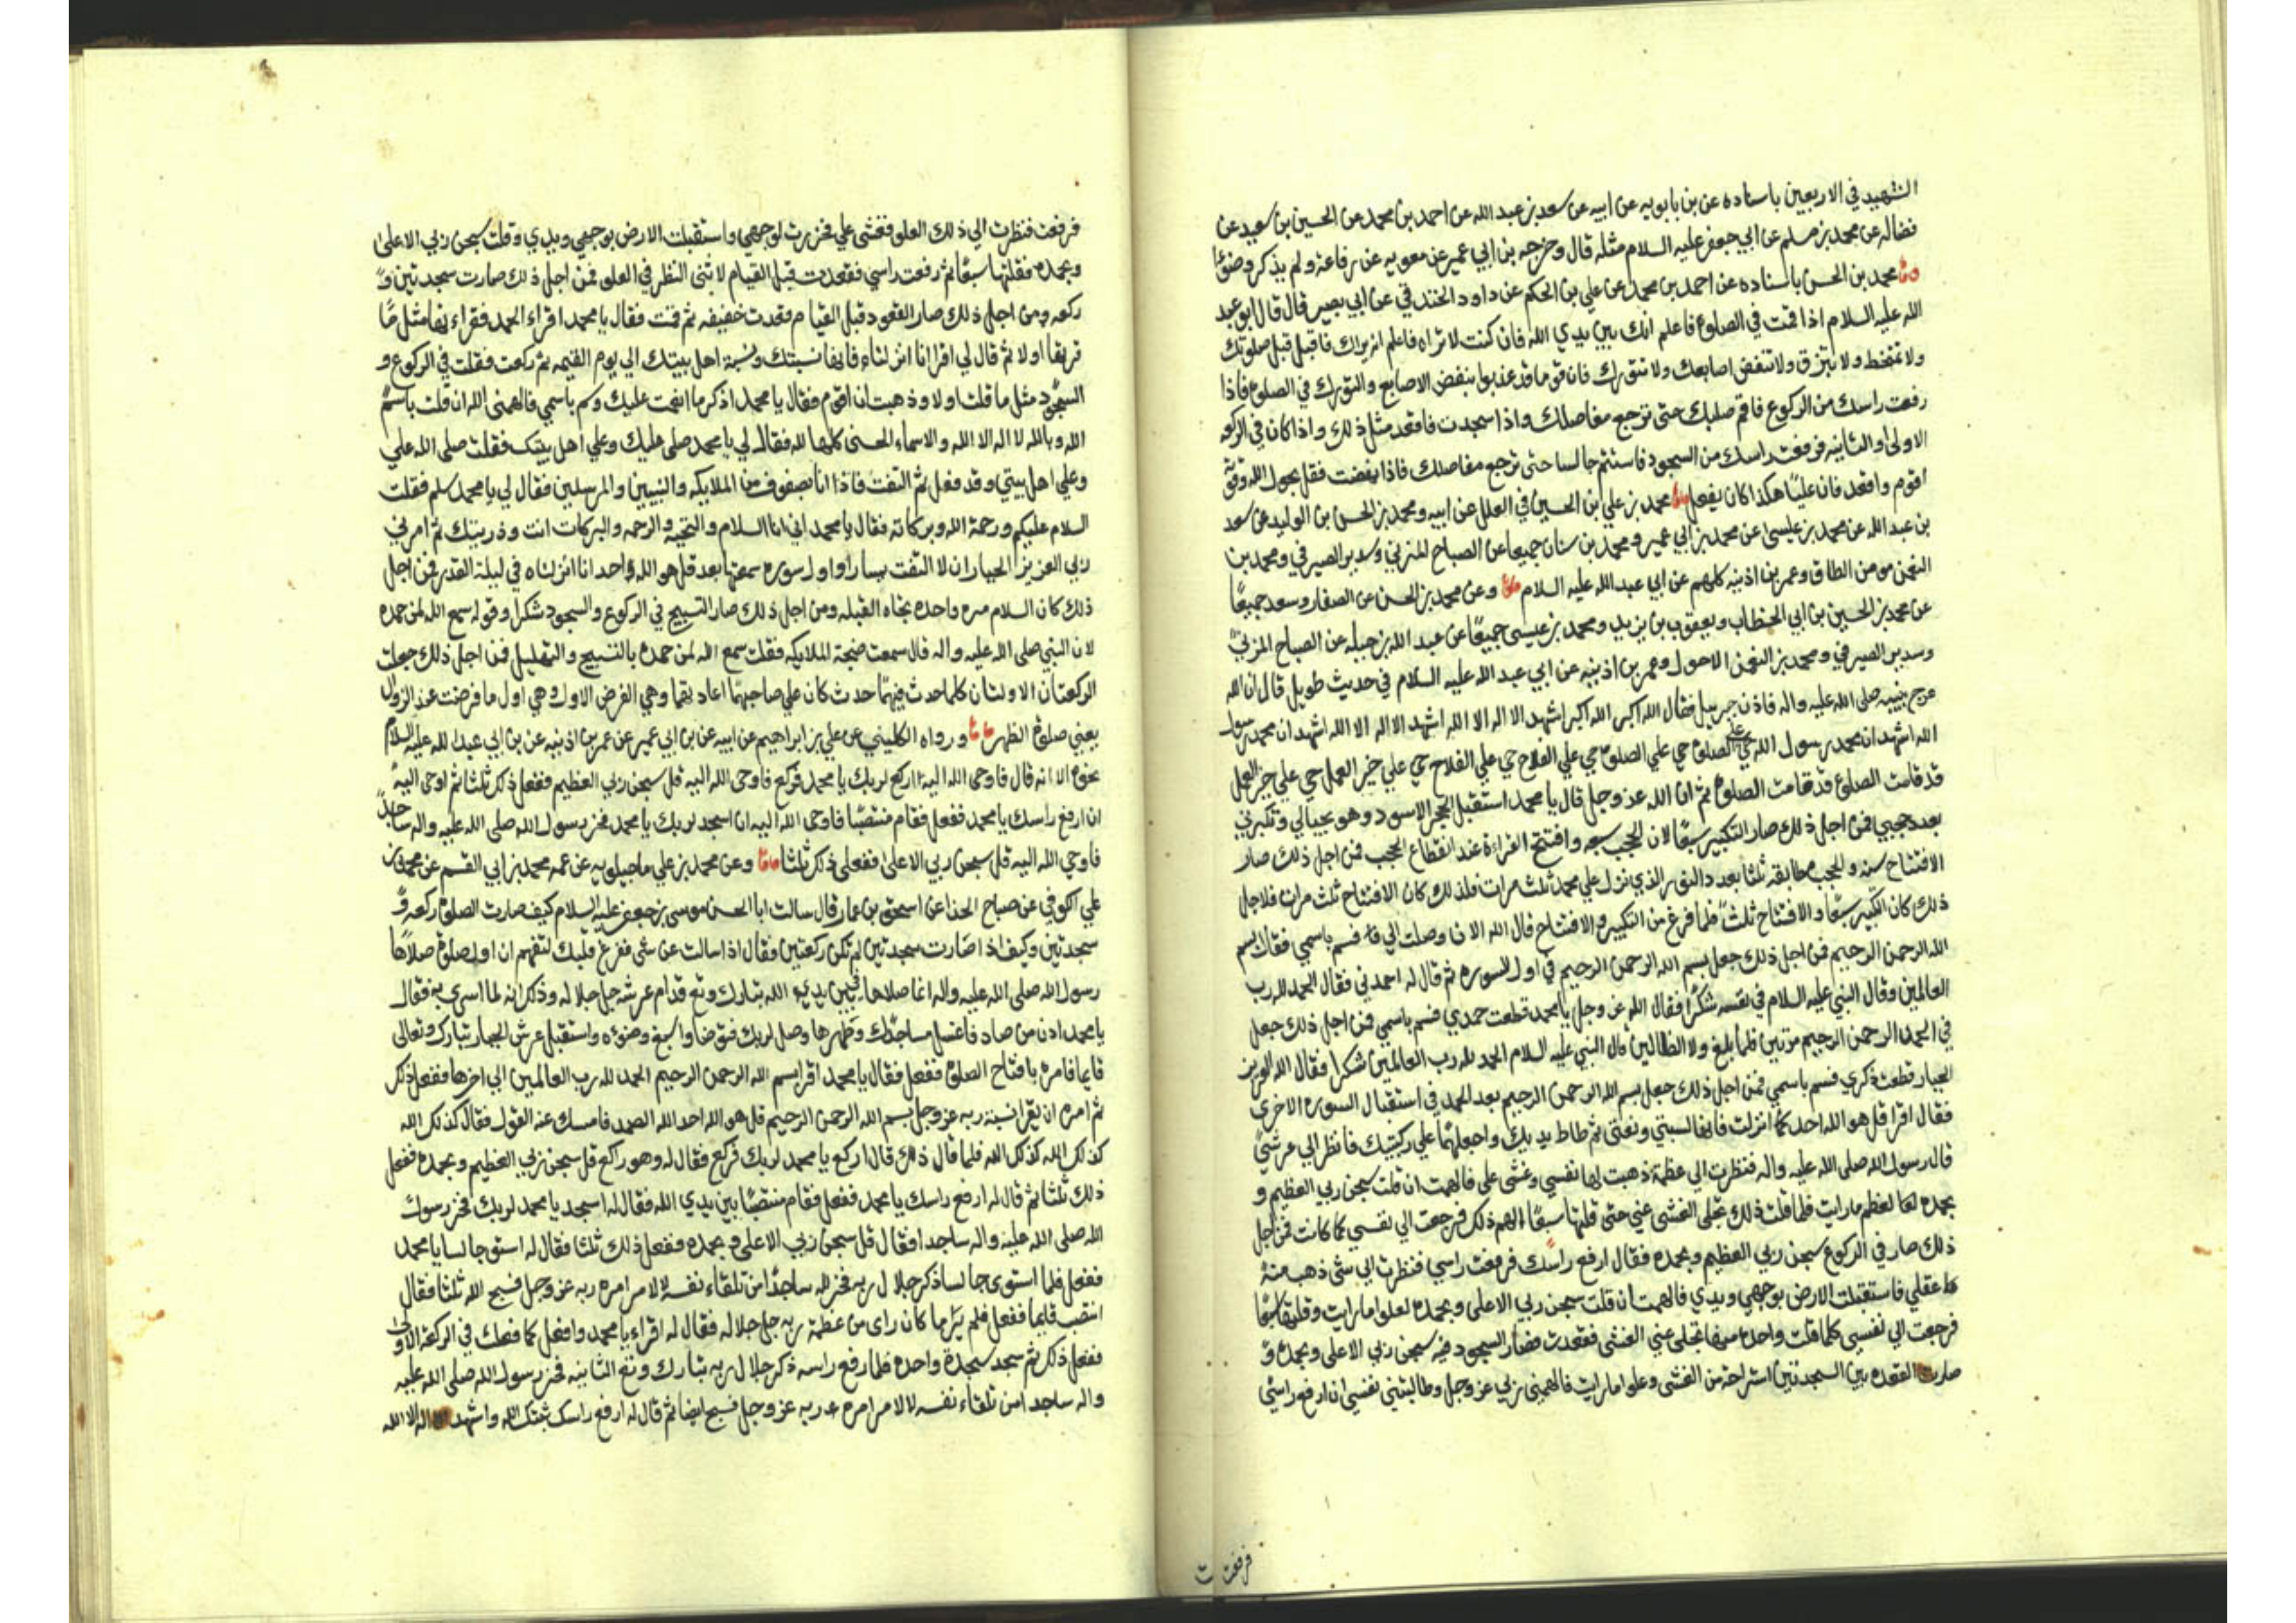 الشهيد في الاربعين باسناده عن بن بابويه عن ابيه عن سعد بن عبد الله عن احمد بن محمد عن الحسين بن سعيد عن
فضاله عن محمد بن مسلم عن ابي جعفر عليه السلام مثله قال وخرجه بن ابي عمير عن معويه عن رفاعة ولم يذكر وضوء
محمد بن الحسن باسناده عن احمد بن محمد عن علي بن الحكم عن داود الخندقي عن ابي بصير قال قال ابو عبد
الله عليه السلام اذا قمت في الصلوة فاعلم انك بين يدي الله فان كنت لا تراه فاعلم انه يراك فاقبل قبل صلوتك
ولا تمتخط ولا تبزق ولا تنقض اصابعك ولا تتورك فان قوما قد عذبوا بنقض الاصابع والتورك في الصلوة فاذا
رفعت راسك من الركوع فاقم صلبك حتى ترجع مفاصلك واذا سجدت فاقعد مثل ذلك واذا كان في الركعه
الاولى والثانيه فرفعت راسك من السجود فاستتم جالسا حتى ترجع مفاصلك فاذا نهضت فقل بحول الله وقوته
اقوم واقعد فان عليا هكذا كان يفعل محمد بن علي بن الحسين في العلل عن ابيه ومحمد بن الحسن بن الوليد عن سعد
بن عبد الله عن محمد بن عيسى عن محمد بن ابي عمير ومحمد بن سنان جميعا عن الصباح المزني وسدير الصيرفي ومحمد بن
النعمن مومن الطاق وعمر بن اذينه كلهم عن ابي عبد الله عليه السلام وعن محمد بن الحسن عن الصفار وسعد جميعًا
عن محمد بن الحسين بن ابي الخطاب ويعقوب بن يزيد ومحمد بن عيسى جميعًا عن عبد الله بن جبله عن الصباح المزني
وسدير الصيرفي ومحمد بن النعمن الاحول وعمر بن اذينه عن ابي عبد الله عليه السلام في حديث طويل قال ان الله
عرج بنبيه صلى الله عليه واله فاذن جبريل فقال الله اكبر الله اكبر اشهد الا اله الا الله اشهد الا اله الا الله اشهد ان محمد رسول
الله اشهد ان محمد رسول الله حي على الصلوة حي علي الصلوة حي علي الفلاح حي علي الفلاح حي علي خير العمل حي علي خير العمل
قد قامت الصلوة قد قامت الصلوة ثم ان الله عز وجل قال يا محمد استقبل الحجر الاسود وهو بحيالي وكبرني
بعدد حجبي فمن اجل ذلك صار التكبير سبعًا لان الحجب سبعه وافتتح القراءة عند انقطاع الحجب فمن اجل ذلك صار
الافتتاح سنه والحجب مطابقه ثلثا بعدد النور الذي نزل علي محمد ثلث مرات فلذلك كان الافتتاح ثلث مرات فلاجل
ذلك كان التكبير سبعًا والافتتاح ثلثًا فلما فرغ من التكبير والافتتاح قال الله الان وصلت الي فسم باسمي فقال بسم
الله الرحمن الرحيم فمن اجل ذلك جعل بسم الله الرحمن الرحيم في اول السوره ثم قال له احمدني فقال الحمد لله رب
العالمين وقال النبي عليه السلام في نفسه شكرًا فقال الله عز وجل يا محمد قطعت حمدي فسم باسمي فمن اجل ذلك جعل
في الحمد الرحمن الرحيم مرتين فلما بلغ ولا الضالين قال النبي عليه السلام الحمد لله رب العالمين شكرا فقال الله العزيز
الجبار قطعت ذكري فسم باسمي فمن اجل ذلك جعل بسم الله الرحمن الرحيم بعد الحمد في استقبال السوره الاخري
فقال اقرا قل هو الله احد كما انزلت فانها نسبتي ونعتي ثم طاط يديك واجعلهما علي ركبتيك فانظر الي عرشي
قال رسول الله صلى الله عليه واله فنظرت الي عظمة ذهبت لها نفسي وغشى علي فالهمت ان قلت سبحن ربي العظيم و
بحمده لعظم مارايت فلما قلت ذلك تجلى الغشى عني حتى قلتها سبعًا الهم ذلك فرجعت الي نفسي كما كانت فمن اجل
ذلك صار في الركوع سبحن ربي العظيم وبحمده فقال ارفع راسك فرفعت راسي فنظرت الي شى ذهب منه
عقلي فاستقبلت الارض بوجهي ويدي فالهمت ان قلت سبحن ربي الاعلى وبحمده لعلو مارايت وقلتها سبعًا
فرجعت الي نفسي كلما قلت واحدة منها تجلى عني الغشى فقعدت فصار السجود فيه سبحن ربي الاعلى وبحمده و
صارت القعده بين السجدتين استراحة من الغشى وعلو مارايت فالهمني ربي عز وجل وطالبتني نفسي ان ارفع راسي
فرفعت
فرفعت فنظرت الي ذلك العلو فغشى علي فخررت لوجهي واستقبلت الارض بوجهي ويدي وقلت سبحن ربي الاعلى
وبحمده فقلتها سبعًا ثم رفعت راسي فقعدت قبل القيام لاثنى النظر في العلو فمن اجل ذلك صارت سجدتين و
ركعه ومن اجل ذلك صار القعود قبل القيام قعدت خفيفه ثم قمت فقال يا محمد اقراء الحمد فقراءتها مثل ما
قراتها اولا ثم قال لي اقرا انا انزلناه فانها نسبتك ونسبة اهل بيتك الي يوم القيمه ثم ركعت فقلت في الركوع و
السجود مثل ما قلت اولا وذهبت ان اقوم فقال يا محمد اذكر ما انعمت عليك وسم باسمي فالهمنى الله ان قلت باسم
الله وبالله لا اله الا الله والاسماء الحسنى كلها لله فقال لي يا محمد صلى عليك وعلي اهل بيتك فقلت صلى الله علي
وعلي اهل بيتي وقد فعل ثم التفت فاذا انا بصفوف من الملايكه والنبيين والمرسلين فقال لي يا محمد سلم فقلت
السلام عليكم ورحمة الله وبركاته فقال يا محمد اني انا السلام والتحيه والرحمه والبركات انت وذريتك ثم امرني
ربي العزيز الجبار ان لا التفت يسارا واول سوره سمعتها بعد قل هو الله احد انا انزلناه في ليلة القدر فمن اجل
ذلك كان السلام مره واحده تجاه القبله ومن اجل ذلك صار التسبيح في الركوع والسجود شكرا وقوله سمع الله لمن حمده
لان النبي صلى الله عليه واله قال سمعت ضجة الملايكه فقلت سمع الله لمن حمده بالتسبيح والتهليل فمن اجل ذلك جعلت
الركعتان الاولتان كلما احدث فيهما حدث كان علي صاحبهما اعادتهما وهي الفرض الاول وهي اول ما فرضت عند الزوال
يعني صلوة الظهر ورواه الكليني عن علي بن ابراهيم عن ابيه عن بن ابي عمير عن عمر بن اذينه عن بن ابي عبد الله عليه السلام
نحوه الا انه قال فاوحى الله اليه اركع لربك يا محمد فركع فاوحى الله اليه قل سبحن ربي العظيم ففعل ذلك ثلثا ثم اوحى اليه
ان ارفع راسك يا محمد ففعل فقام منتصبًا فاوحى الله اليه ان اسجد لربك يا محمد فخر رسول الله صلى الله عليه واله ساجدا
فاوحي الله اليه قل سبحن ربي الاعلى ففعل ذلك ثلثا وعن محمد بن علي ماجيلويه عن عمه محمد بن ابي القسم عن محمد بن
علي الكوفي عن صباح الحذا عن اسحق بن عمار قال سالت ابا الحسن موسى بن جعفر عليه السلام كيف صارت الصلوة ركعه و
سجدتين وكيف اذا صارت سجدتين لم تكن ركعتين فقال اذا سالت عن شى ففرغ قلبك لتفهم ان اول صلوة صلاها
رسول الله صلى الله عليه واله انما صلاها بين يدي الله تبارك وتع قدام عرشه جل جلاله وذكر انه لما اسرى به فقال
يا محمد ادن من صاد فاغسل مساجدك وطهرها وصل لربك فتوضا واسبغ وضوءه واستقبل عرش الجبار تبارك وتعالى
قايما فامره بافتتاح الصلوة ففعل فقال يا محمد اقرا بسم الله الرحمن الرحيم الحمد لله رب العالمين الي اخرها ففعل ذلك
ثم امره ان يقرا نسبة ربه عز وجل بسم الله الرحمن الرحيم قل هو الله احد الله الصمد فامسك عنه القول فقال كذلك الله
كذلك الله كذلك الله فلما قال ذلك قال اركع يا محمد لربك فركع فقال له وهو راكع قل سبحن ربي العظيم وبحمده ففعل
ذلك ثلثا ثم قال له ارفع راسك يا محمد ففعل فقام منتصبًا بين يدي الله فقال له اسجد يا محمد لربك فخر رسول
الله صلى الله عليه واله ساجدا فقال قل سبحن ربي الاعلى وبحمده ففعل ذلك ثلثا فقال له استو جالسا يا محمد
ففعل فلما استوى جالسا ذكر جلال ربه فخر لله ساجدًا من تلقاء نفسه لا لامر امره ربه عز وجل فسبح الله ثلثا فقال
انتصب قايما ففعل فلم ير ما كان راى من عظمة ربه جل جلاله فقال له اقراء يا محمد وافعل كما فعلت في الركعة الاولى
ففعل ذلك ثم سجد سجدة واحده فلما رفع راسه ذكر جلال ربه تبارك وتع الثانيه فخر رسول الله صلى الله عليه
واله ساجدا من تلقاء نفسه لا لامر امره ربه عز وجل فسبح ايضا ثم قال له ارفع راسك ثبتك الله واشهد الا اله الا الله